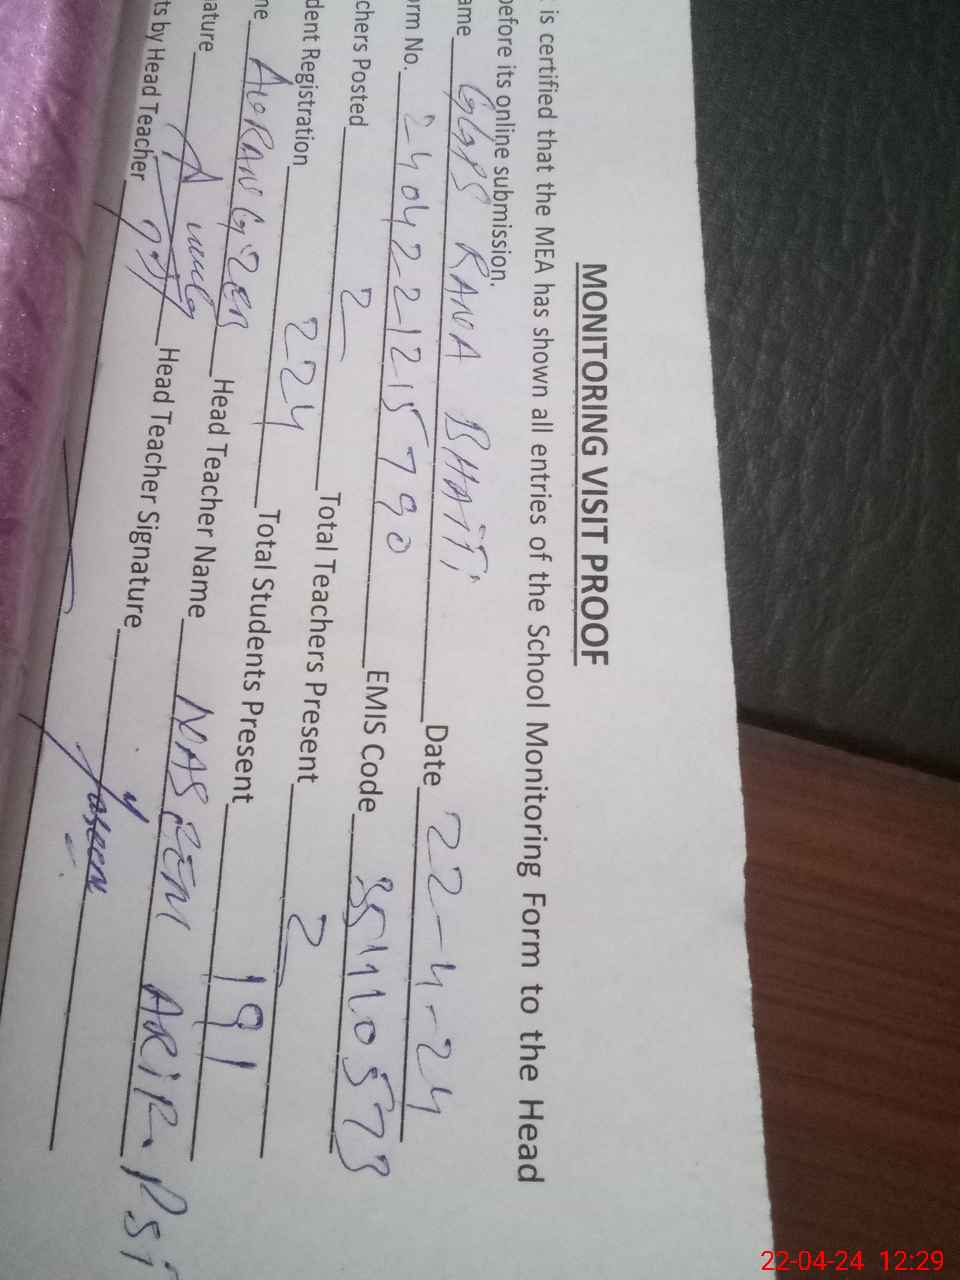 MONITORING VISIT PROOF
is certified that the MEA has shown all entries of the School Monitoring Form to the Head
before its online submission.
ame GGPS RANA BHATTI Date 22-4-24
orm No. 2404221215790 EMIS Code 35110573
chers Posted 2 Total Teachers Present 2
dent Registration 224 Total Students Present 191
me AURANGZEB Head Teacher Name NASEEM ARIF. PST
ature Head Teacher Signature
ts by Head Teacher
22-04-24 12:29